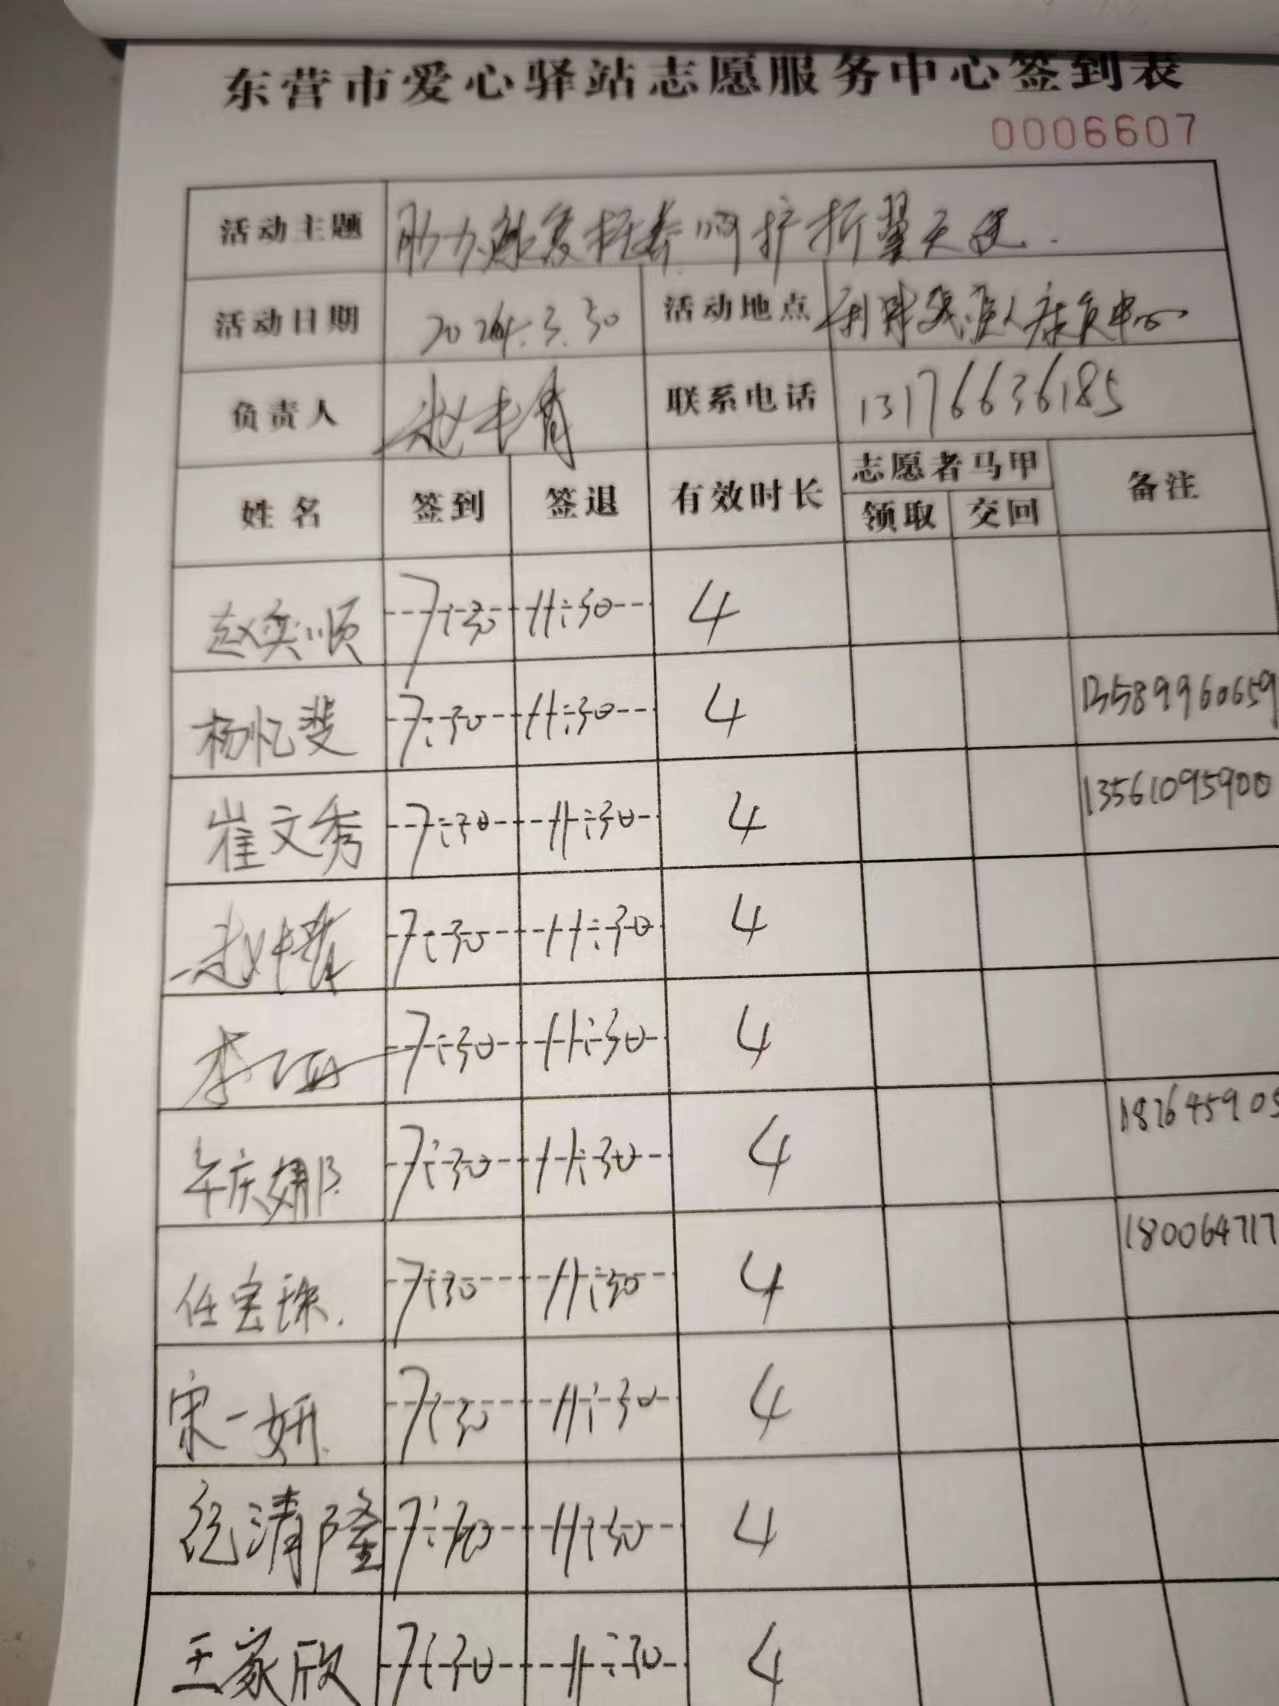 东营市爱心驿站志愿服务中心签到表
0006607
活动主题 助力康复托养 呵护折翼天使.
活动日期 2024.3.30 活动地点 利津残疾人康复中心
负责人 联系电话 13176636185
姓名 签到 签退 有效时长 志愿者马甲 备注
领取 交回
赵奕顺 7:30 11:30 4
杨忆斐 7:30 11:30 4 13589960659
崔文秀 7:30 11:30 4 13561095900
7:30 11:30 4
7:30 11:30 4
牟庆娜 7:30 11:30 4 187645905
任宝珠. 7:30 11:30 4 180064717
宋一妍. 7:30 11:30 4
纪清隆 7:30 11:30 4
王家欣 7:30 11:30 4